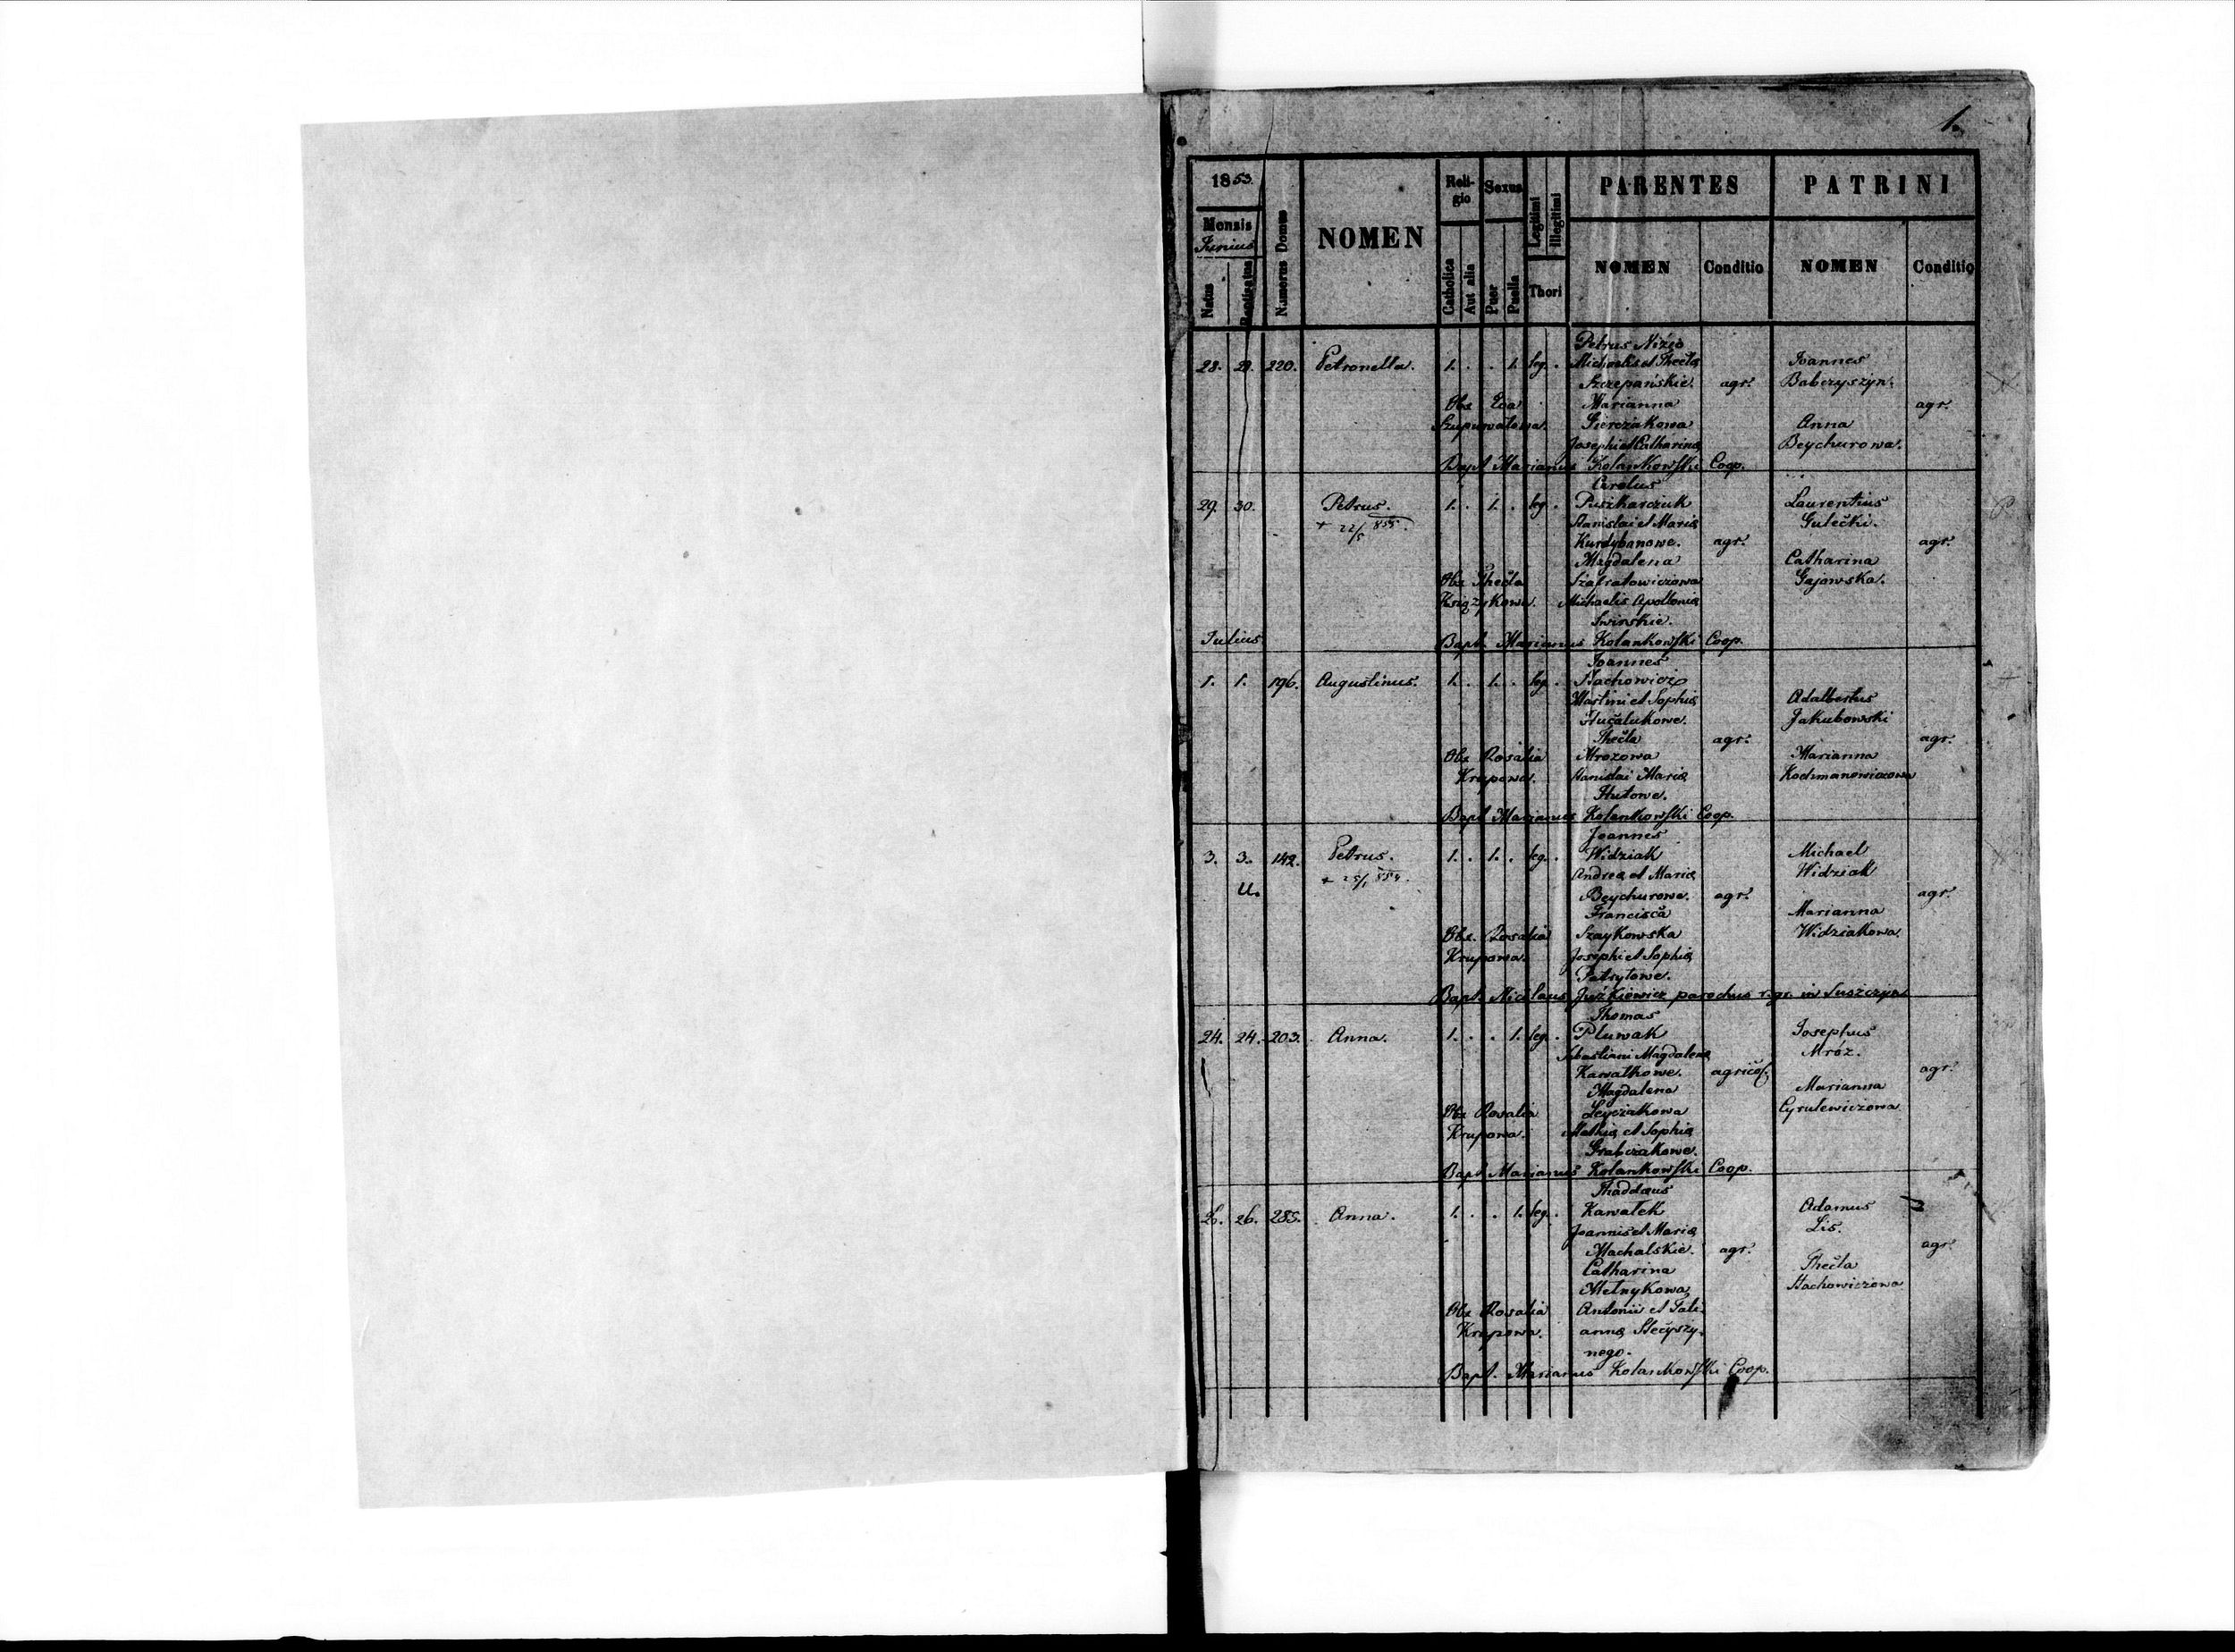 1.
1853.
Mensis
Junius
Natus
Baptisatus
Numerus Domus
NOMEN
Religio
Catholica
Aut alia
Sexus
Puer
Puella
Legitimi
Illegitimi
Thori
PARENTES
NOMEN
Conditio
PATRINI
NOMEN
Conditio
Petrus Nizio
28. 29. 220. Petronella. 1. . . 1. leg. . Michaelis et Thecla Joannes
Szczepańskie. agr. Babczyszyn.
Obs Eva Marianna agr.
Szupuwałowa. Gierczakowa Anna
Josephi et Catharina Beychurowa.
Bapt Marianus Kolankowski Coop.
Carolus
29. 30. Petrus. 1. . 1. . leg. . Puszkarczuk Laurentius
+ 22/5 855. Stanislai et Maria Gulecki.
Kurdybanowe. agr. agr.
Magdalena Catharina
Obs Thecla Szafratowiczowa Gajowska.
Książykowa. Michaelis Apollonia
Swirskie.
Julius Bapt. Marianus Kolankowski Coop.
Joannes
1. 1. 196. Augustinus. 1. . 1. . leg. Stachowicz
Martini et Sophia Adalbertus
Hučalukowe. Jakubowski
Thecla agr. agr.
Obs Rosalia Mrozowa Marianna
Krupowa. Stanislai Maria Kochmanowiczowa
Hutowe.
Bapt Marianus Kolankowski Coop.
Joannes
3. 3. 142. Petrus. 1. . 1. . leg. . Widziak Michael
U. + 25/1 854. Andrea et Maria Widziak
Beychurowe. agr. agr.
Francisca Marianna
Obs. Rosalia Szaykowska Widziakowa.
Krupowa. Josephi et Sophia
Patrytowe.
Bapt. Nicolaus Juźkiewicz parochus r. gr. in Suszczyn
Thomas
24. 24. 203. Anna. 1. . . 1. leg. . Pluwak Josephus
Sebastiani Magdalena Mróz.
Kawałkowe. agricol. agr.
Magdalena Marianna
Obs Rosalia Leyczakowa Cyrulewiczowa
Krupowa. Mathia et Sophia
Grabczakowe.
Bapt Marianus Kolankowski Coop.
Thaddaus
26. 26. 285. Anna. 1. . . 1. leg. . Kawałek Adamus
Joannis et Maria Lis.
Machalskie. agr. agr.
Catharina Thecla
Melnykowa Stachowiczowa
Obs Rosalia Antonii et Tati-
Krupowa. anna Stečyszy-
nego.
Bapt. Marianus Kolankowski Coop.